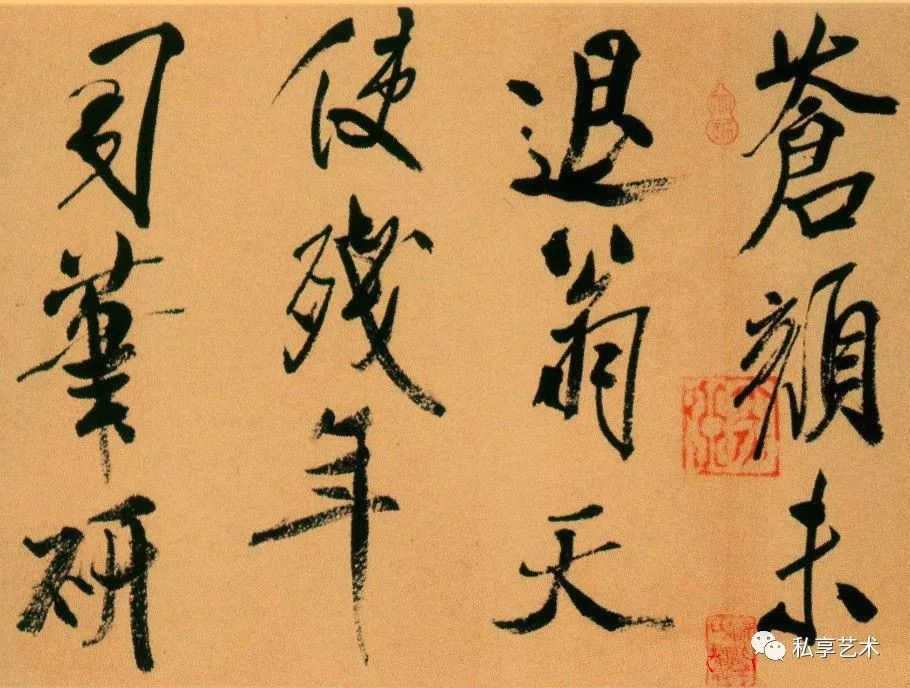 蒼顔未
退翁天
使殘年
司筆研
私享艺术